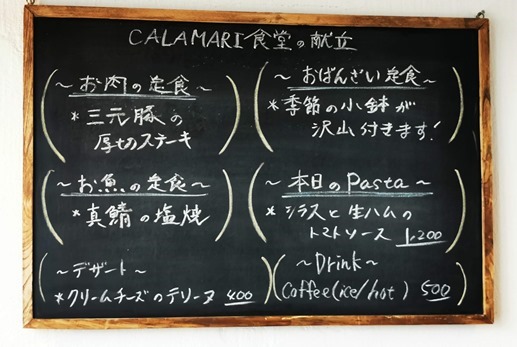 CALAMARI食堂の献立
〜お肉の定食〜
*三元豚の
厚切ステーキ
〜おばんざい定食〜
*季節の小鉢が
沢山付きます!
〜お魚の定食〜
*真鯖の塩焼
〜本日のpasta〜
*シラスと生ハムの
トマトソース 1,200
〜デザート〜
*クリームチーズのテリーヌ 400
〜Drink〜
Coffee(ice/hot) 500